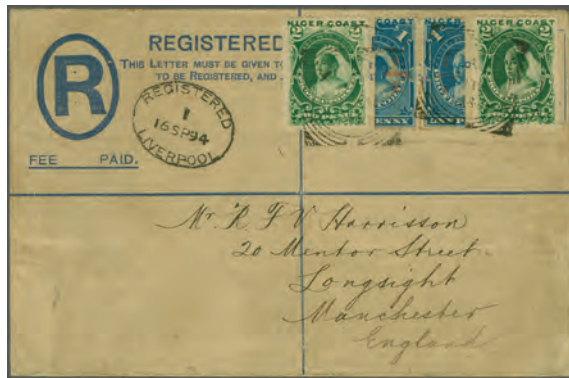 REGISTERED
THIS LETTER MUST BE GIVEN TO
TO BE REGISTERED, AND
R
FEE PAID.
REGISTERED
1
16 SP 94
LIVERPOOL
NIGER COAST
2
COAST
1
NIGER
1
NIGER COAST
2
Mr. R F V Harrisson
20 Mentor Street
Longsight
Manchester
England